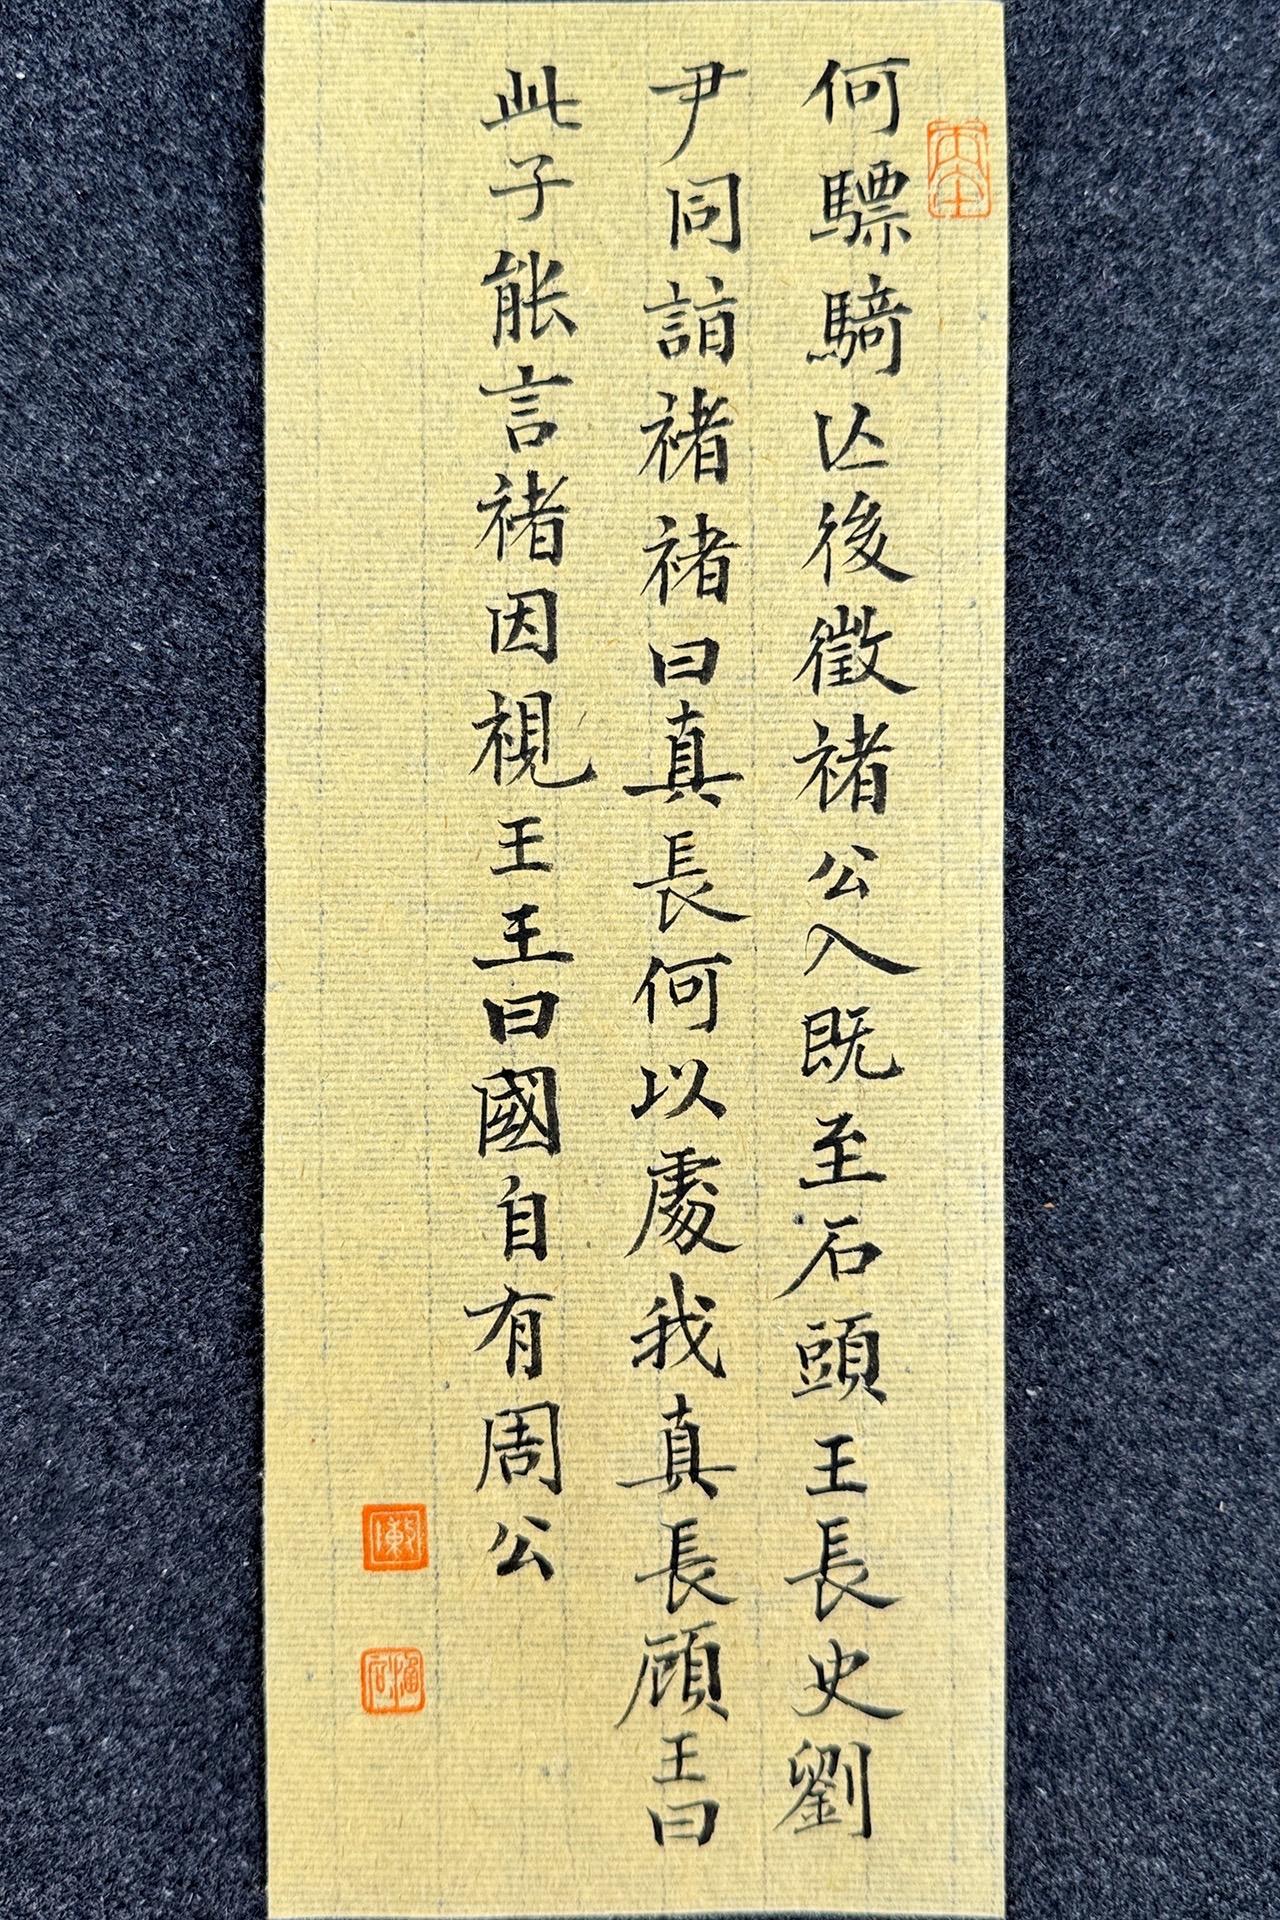 何驃騎亾後徵褚公入既至石頭王長史劉
尹同詣褚褚曰真長何以處我真長顧王曰
此子能言褚因視王王曰國自有周公